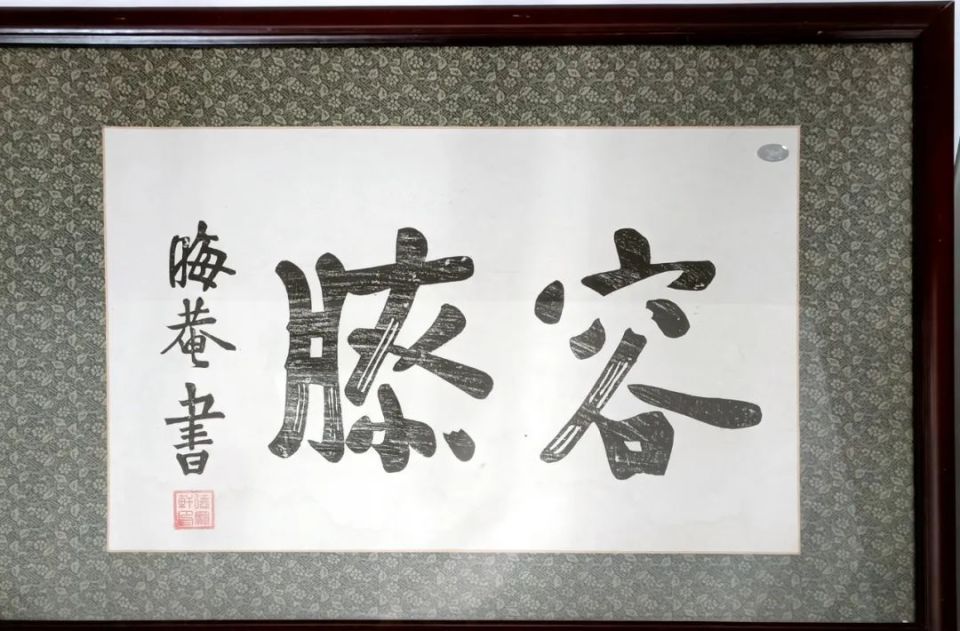 容膝
晦菴書